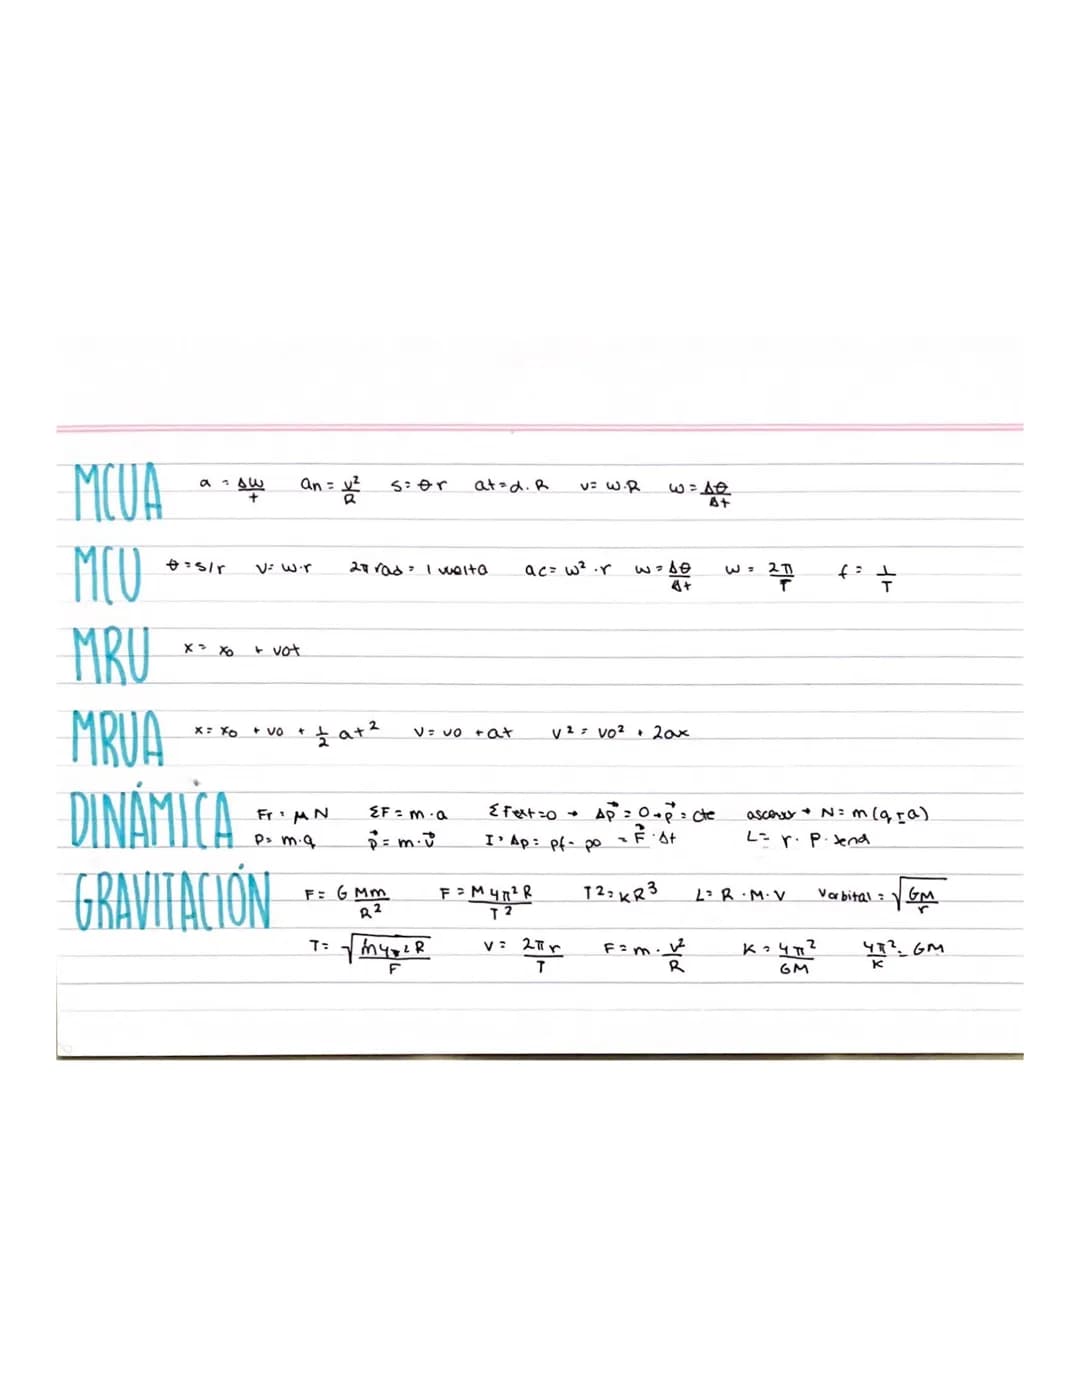 MCUA a = Δw/t an = v²/R s = θr at = α.R v = w.R w = Δθ/Δt
MCU θ = s/r v = w.r 2π rad = 1 vuelta ac = w².r w = Δθ/Δt w = 2π/T f = 1/T
MRU x = x0 + v0t
MRUA x = x0 + v0 + 1/2 at² v = v0 + at v² = v0² + 2ax
DINÁMICA Fr = μN ΣF = m.a ΣFext=0 → Δp⃗ = 0 → p⃗ = cte ascensor → N = m(g±a)
P = m.g p⃗ = m.v⃗ I = Δp = pf - p0 = F⃗.Δt L = r.p.senα
GRAVITACIÓN F = G Mm/R² F = M4π²R/T² T2 = KR³ L = R.M.V Vorbital = √GM/r
T = √m4π²R/F v = 2πr/T F = m.v²/R K = 4π²/GM 4π²/K = GM